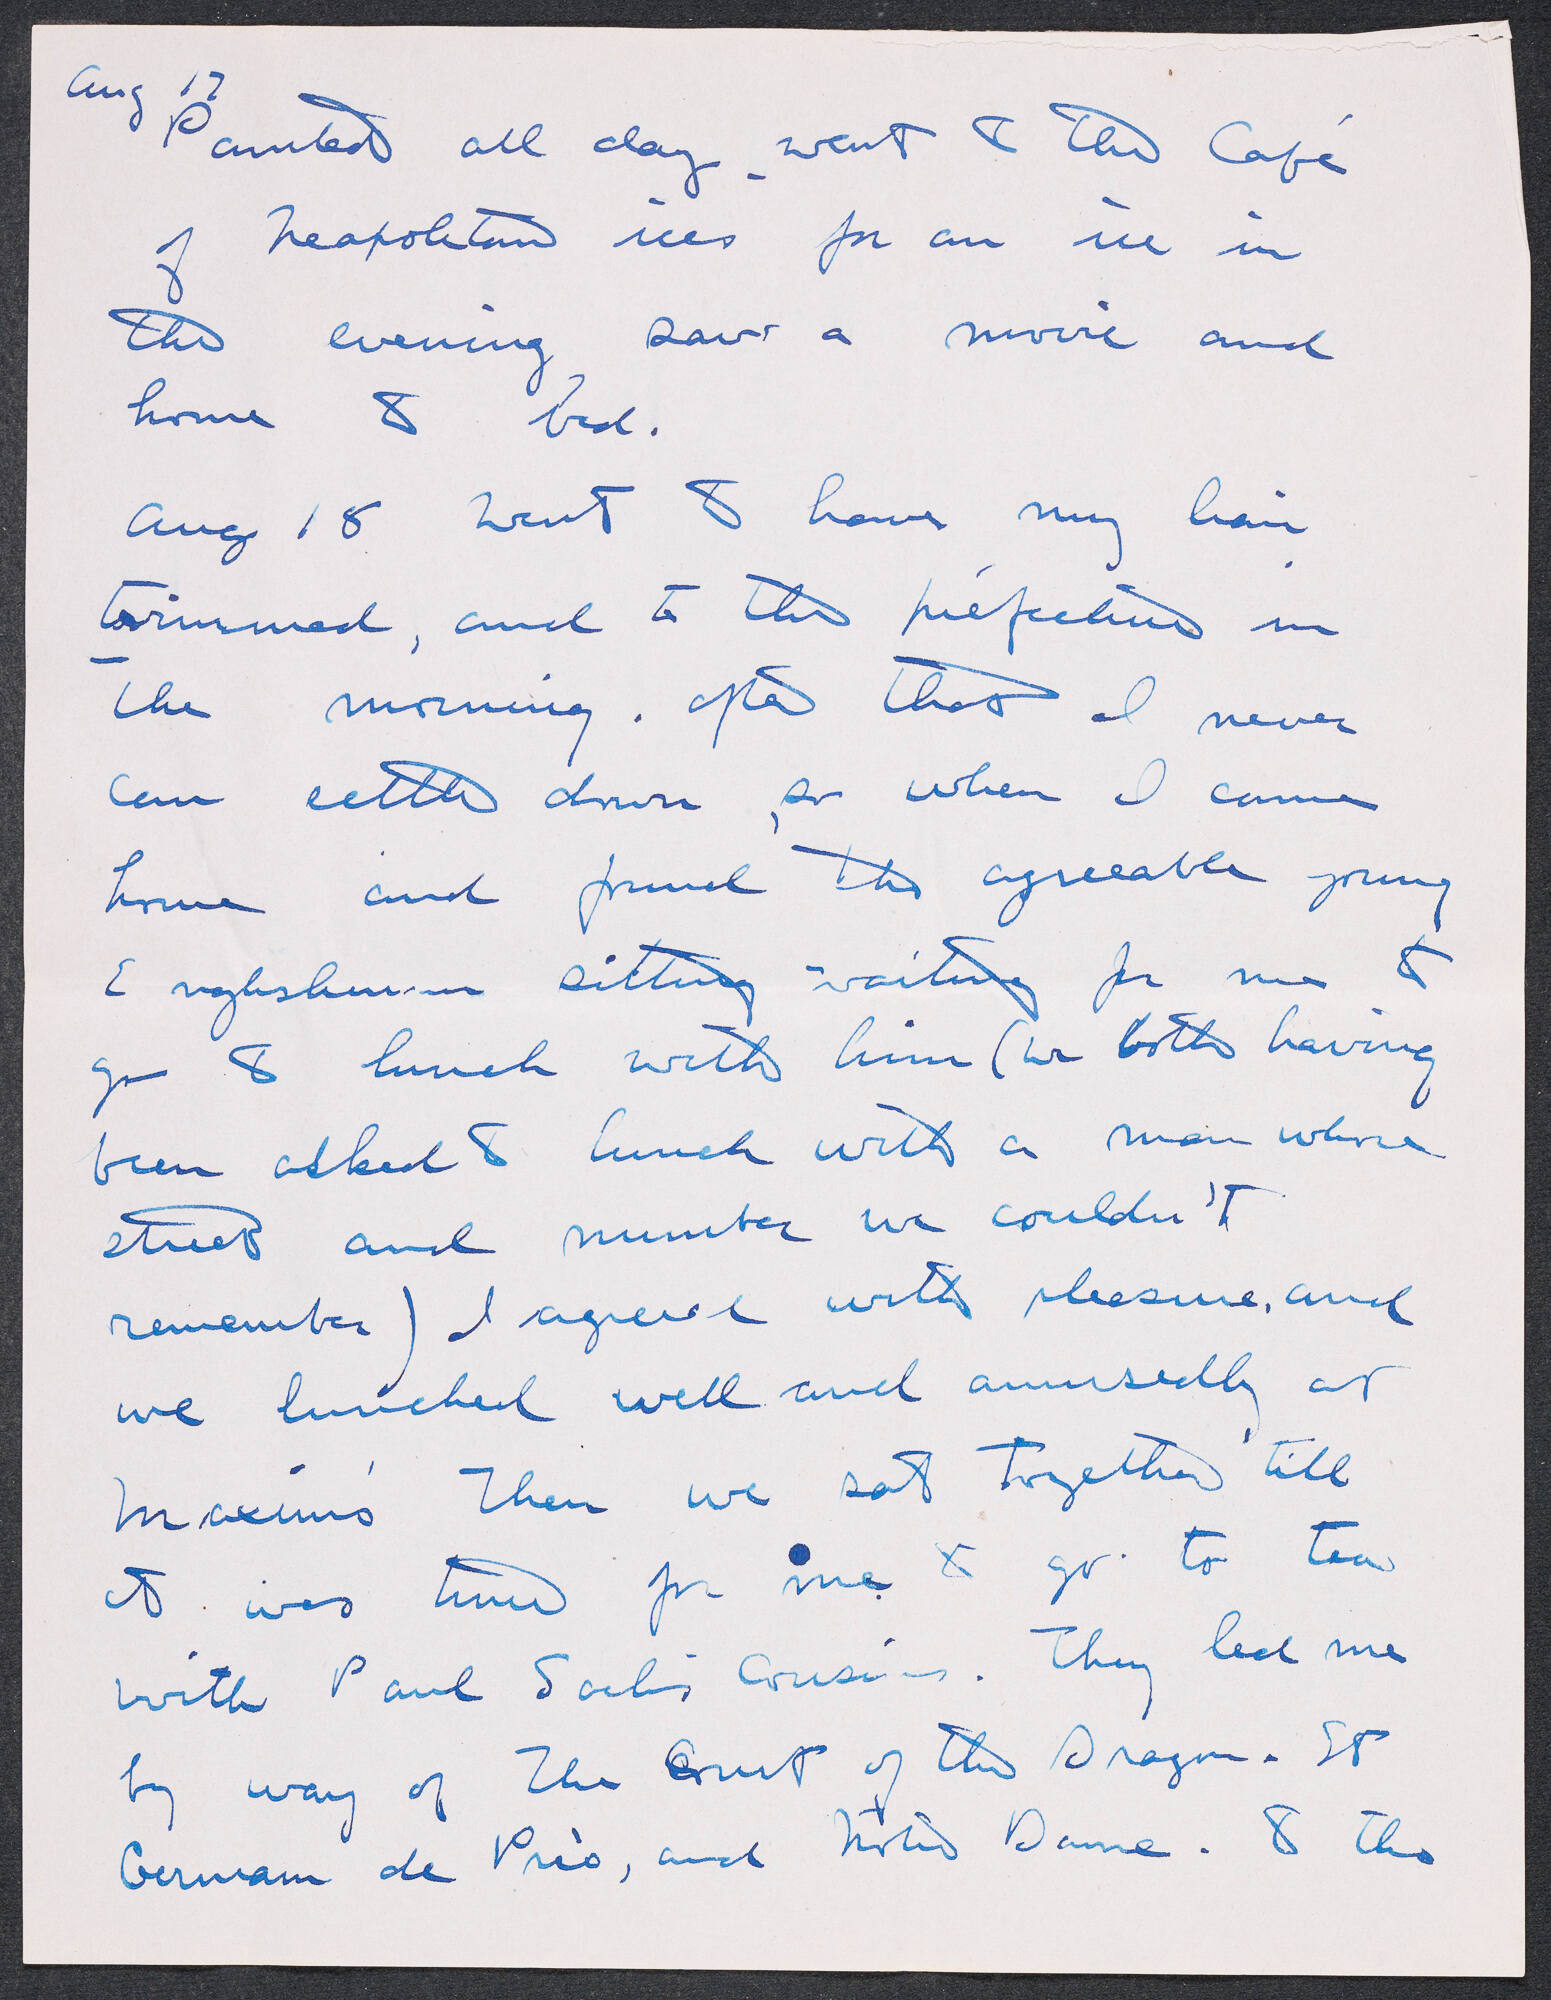 Aug 17
Painted all day - went to the Café
of Neapolitan ices for an ice in
the evening saw a movie and
home to bed.
Aug 18 Went to have my hair
trimmed, and to the préfecture in
the morning. After that I never
can settle down, so when I came
home and found the agreeable young
Englishman sitting waiting for me to
go to lunch with him (we both having
been asked to lunch with a man whose
street and number we couldn't
remember) I agreed with pleasure, and
we lunched well and amusedly at
Maxim's Then we sat together till
it was time for me to go to tea
with Paul Sachs cousins. They led me
by way of The Court of the Dragon - St
Germain de Près, and Notre Dame. to the